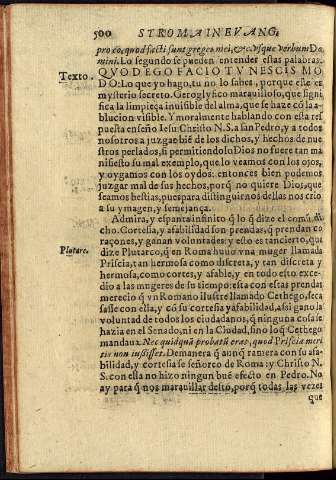 500 STROMA IN EVANG.
pro eo, quod facti sunt greges mei, &c. vsque verbum Do
mini. Lo segundo se pueden entender estas palabras.
Texto. QVOD EGO FACIO TV NESCIS MO
DO: Lo que yo hago, tu no lo sabes, porque este es
mysterio secreto. Geroglyfico marauilloso, que signi
fica la limpieça inuisible del alma, que se haze cõ la a-
blucion visible. Y moralmente hablando con esta res
puesta enseño Iesu Christo N. S. a san Pedro, y a todos
nosotros a juzgar biẽ de los dichos, y hechos de nue
stros perlados, si permitiendolo Dios no fuere tan ma
nifiesto su mal exemplo, que lo veamos con los ojos,
y oygamos con los oydos: entonces bien podemos
juzgar mal de sus hechos, porq̃ no quiere Dios, que
seamos bestias, pues para distinguirnos dellas nos crio
a su ymagen, y semejança.
Admira, y espanta infinito q̃ lo q̃ dize el comũ di
cho. Cortesia, y afabilidad son prendas, q̃ prendan co
raçones, y ganan voluntades: y esto es tan cierto, que
Plutarc. dize Plutarco, q̃ en Roma huuo vna muger llamada
Priscia, tan hermosa como discreta, y tan discreta y
hermosa, como cortes, y afable, y en todo esto exce-
dio a las mugeres de su tiempo: esta con estas prendas
merecio q̃ vn Romano ilustre llamado Cethego, seca
sasse con ella, y cõ su cortesia y afabilidad, assi gano la
voluntad de todos los ciudadanos, q̃ ninguna cosa se
hazia en el Senado, ni en la Ciudad, sino loq̃ Cethego
mandaua. Nec quidquã probatũ erat, quod Priscia meri
tis non iussisset. De manera q̃ aunq̃ ramera con su afa-
bilidad, y cortesia se señoreo de Roma: y Christo N.
S. con ella no hizo ningun buẽ efecto en Pedro. No
ay para q̃ nos marauillar desto, porq̃ todas las vezes
que